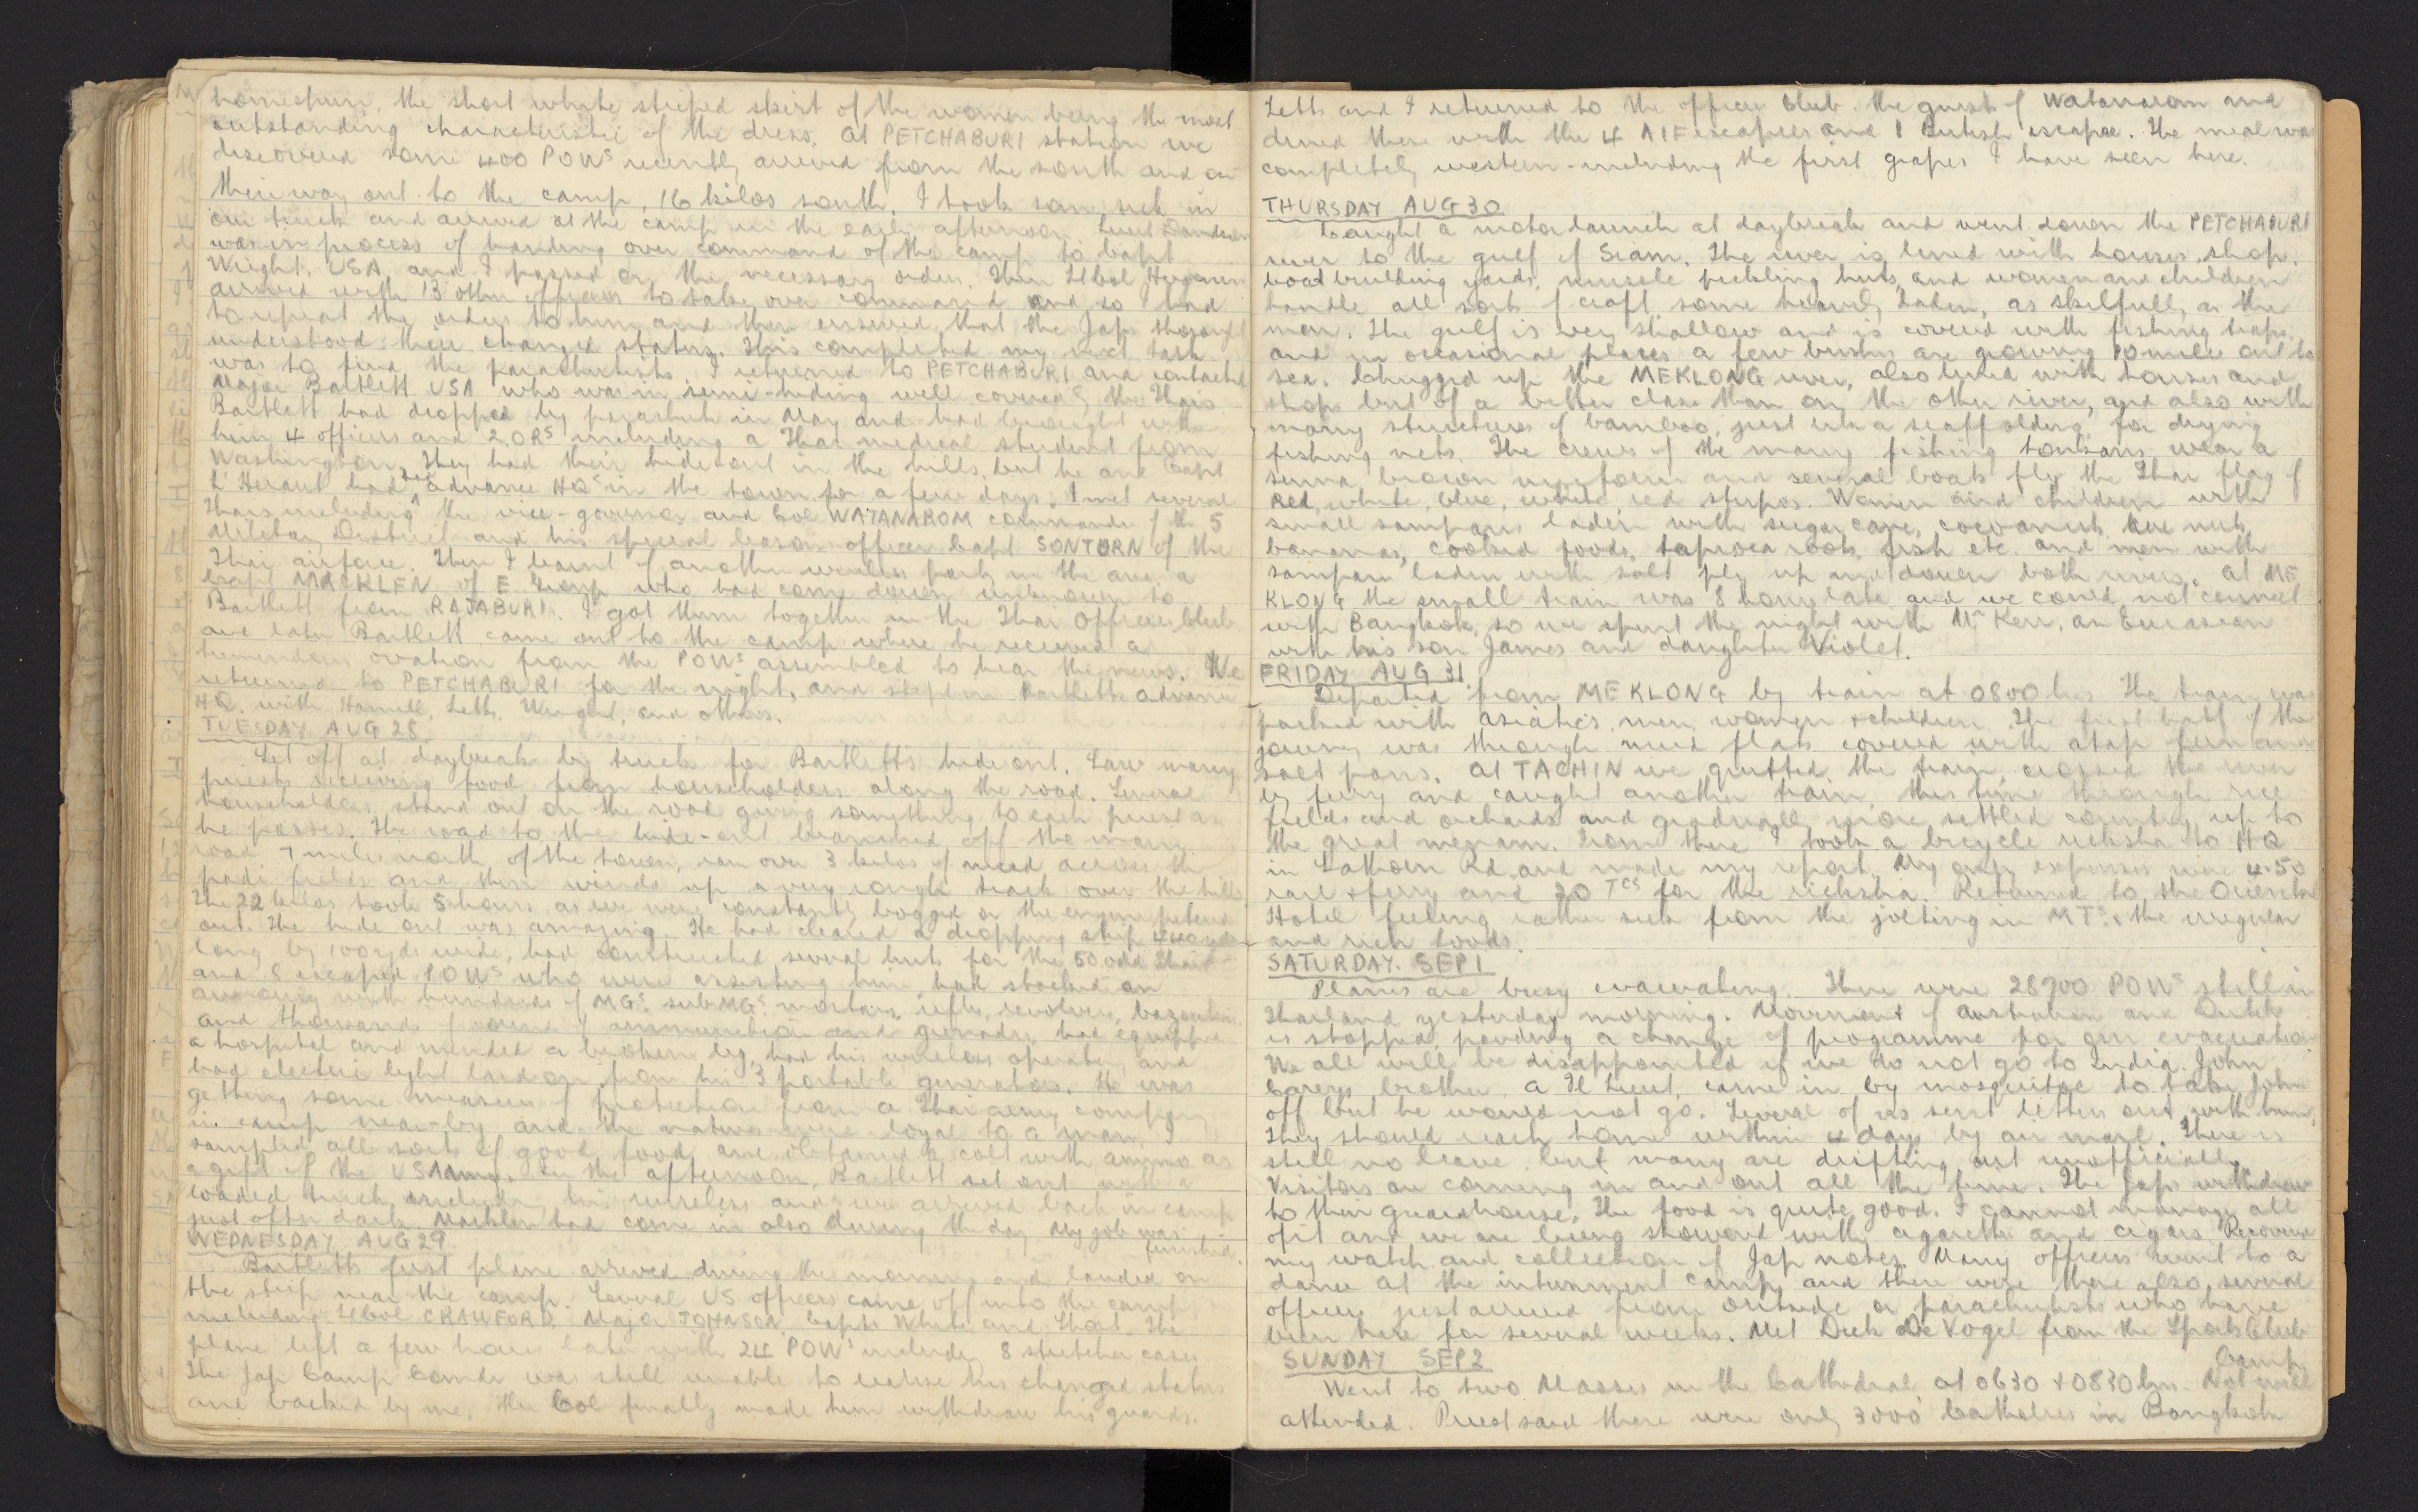 homespun, the short white striped skirt of the women being the most
outstanding characteristic of the dress. At PETCHABURI station we
discovered some 400 POWs recently arrived from the south and on
their way out to the camp, 16 kilos south. I took some sick in
our truck and arrived at the camp in the early afternoon. Lieut
was in process of handing over command of the camp to Capt
Wright, USA, and I passed on the necessary orders. Then Lt Col
arrived with 13 other officers to take over command and so I had
to repeat the orders to him and then ensured that the Japs thoroughly
understood their changed status. This completed my next task
was to find the parachutists. I returned to PETCHABURI and contacted
Major Bartlett USA who was in semi-hiding well covered by the Thais.
Bartlett had dropped by parachute in May and had brought with
him 4 officers and 2 ORs including a Thai medical student from
Washington. They had their hide out in the hills, but he and Capt
L'Heraut had advance HQs in the town for a few days. I met several
Thais including the vice-governor and Col WATANAROM commander of the 5
Military District and his special liaison officer Capt SONTORN of the
Thai airforce. Then I learnt of another wireless party in the area, a
Capt MACKLEN of E Group who had come down unknown to
Bartlett from RAJABURI. I got them together in the Thai Officers Club
and later Bartlett came out to the camp where he received a
tremendous ovation from the POWs assembled to hear the news. We
returned to PETCHABURI for the night, and slept in Bartletts advance
HQ. with Letts, Wright, and others.
TUESDAY AUG 28
Set off at daybreak by truck for Bartlett's hide out. Saw many
priests receiving food from householders along the road. Several
householders stand out on the road giving something to each priest as
he passes. The road to the hide-out branched off the main
road 7 miles north of the town, ran over 3 kilos of mud across the
padi fields and then winds up a very rough track over the hills
The 22 kilos took 5 hours as we were constantly bogged or the engine petered
out. The hide out was amazing. He had cleared a dropping strip 440 yds
long by 100 yds wide, had constructed several huts for the 50 odd Thais
and 8 escaped POWs who were assisting him, had stocked an
armoury with hundreds of MGs, sub MGs, mortars, rifles, revolvers, bazookas
and thousands of rounds of ammunition and grenades, had equipped
a hospital and mended a broken leg, had his wireless operating and
had electric light laid on from his 3 portable generators. He was
getting some measure of protection from a Thai army company
in camp near-by and the natives were loyal to a man. I
sampled all sorts of good food and obtained a colt with ammo as
a gift of the US Army. In the afternoon, Bartlett set out with a
loaded truck including his wireless and we arrived back in camp
just after dark. Macklen had come in also during the day. My job was
finished.
WEDNESDAY AUG 29
Bartletts first plane arrived during the morning and landed on
the strip near the camp. Several US officers came off into the camp
including Lt Col CRAWFORD, Major JOHNSON, Capts White and Short. The
plane left a few hours later with 24 POWs including 8 stretcher cases.
The Jap Camp Comdr was still unable to realise his changed status
and backed by me, the Col finally made him withdraw his guards.
Letts and I returned to the officers Club the guest of Watanarom and
dined there with the 4 AIF escapees and 1 British escapee. The meal was
completely western - including the first grapes I have seen here.
THURSDAY AUG 30
Caught a motor launch at daybreak and went down the PETCHABURI
river to the gulf of Siam. The river is lined with houses, shops,
boat building yards, mussle pickling huts, and women and children
handle all sorts of craft, some heavily laden, as skilfully as the
men. The gulf is very shallow and is covered with fishing traps
and in occasional places a few bushes are growing 10 miles out to
sea. Chugged up the MEKLONG river, also lined with houses and
shops but of a better class than on the other river, and also with
many structures of bamboo, just like scaffolding, for drying
fishing nets. The crews of the many fishing tonkans wear a
brown uniform and several boats fly the Thai flag of
red, white, blue, white, red stripes. Women and children with
small sampans laden with sugar cane, cocoanuts, nuts,
bananas, cooked foods, tapioca roots, fish etc. and men with
sampans laden with salt ply up and down both rivers. At ME
KLONG the small train was 8 hours late and we could not connect
with Bangkok, so we spent the night with Mr Kerr, an Eurasian
with his son James and daughter Violet.
FRIDAY AUG 31
Departed from MEKLONG by train at 0800 hrs. The train was
packed with asiatics, men, women & children. The first half of the
journey was through mud flats covered with atap fern and
salt pans. At TACHIN we quitted the train, crossed the river
by ferry and caught another train, this time through rice
fields and orchards and gradually more settled country up to
the great menam. From there I took a bicycle ricksha to HQ
in Sathorn Rd and made my report. My only expenses were 4.50
rail & ferry and 20 Tcs for the ricksha. Returned to the Oriental
Hotel feeling rather sick from the jolting in MTs & the irregular
and rich foods.
SATURDAY. SEP 1
Planes are busy evacuating. There were 28700 POWs still in
Thailand yesterday morning. Movement of Australian and Dutch
is stopped, pending a change of programme for our evacuation
We all will be disappointed if we do not go to India. John
Careys brother, a Lieut, came in by mosquitoe to take John
off but he would not go. Several of us sent letters out with him.
They should reach home within 4 days by air mail. There is
still no leave but many are drifting out unofficially.
Visitors are coming in and out all the time. The Japs withdrew
to their guardhouse. The food is quite good. I cannot manage all
of it and we are being showered with cigarettes and cigars. Recovered
my watch and collection of Jap notes. Many officers went to a
dance at the internment camp and there were there also several
officers just arrived from outside or parachutists who have
been here for several weeks. Met Dick De Vogel from the Sports Club
Camp.
SUNDAY SEP 2
Went to two Masses in the Cathedral at 0630 & 0830 hrs. Not well
attended. Priest said there were only 3000 Catholics in Bangkok